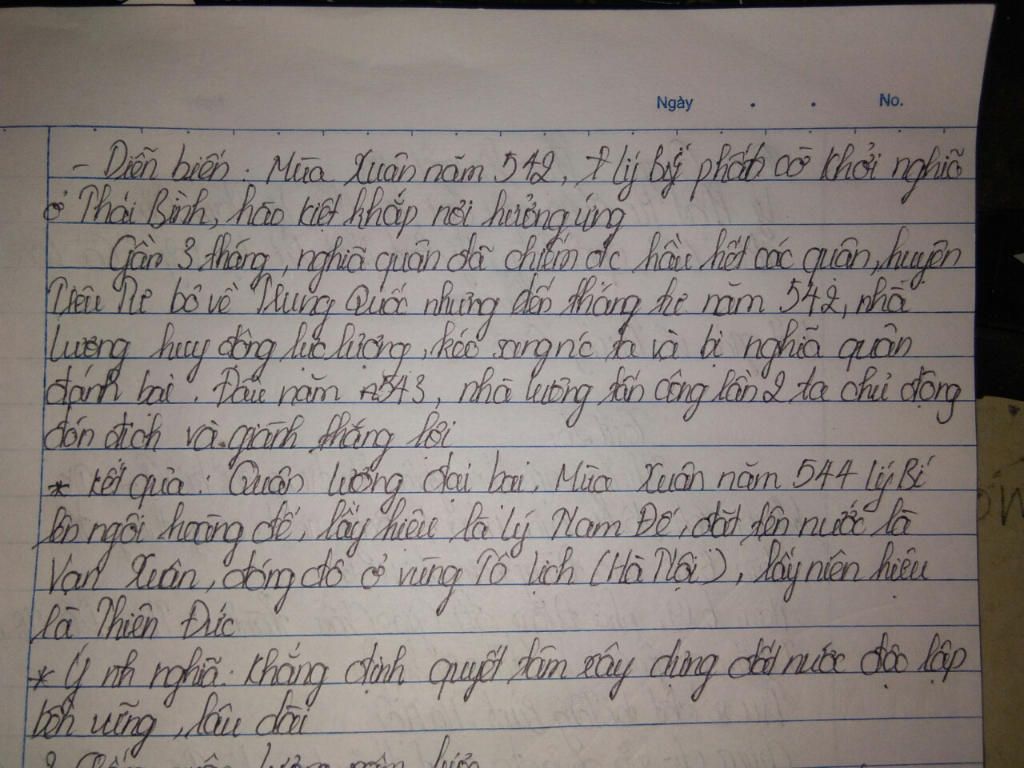 Ngày . . No.
- Diễn biến: Mùa Xuân năm 542, lý Bí phất cờ khởi nghĩa
ở Thái Bình, hào kiệt khắp nơi hưởng ứng
Gần 3 tháng, nghĩa quân đã chiếm đc hầu hết các quận, huyện
Tiêu Tư bỏ về Trung Quốc nhưng đến tháng tư năm 542, nhà
Lương huy động lực lượng, kéo sang nc ta và bị nghĩa quân
đánh bại. Đầu năm 543, nhà lương tấn công lần 2 ta chủ động
đón địch và giành thắng lợi
* Kết quả: Quân lương đại bại. Mùa Xuân năm 544 lý Bí
lên ngôi hoàng đế, lấy hiệu là lý Nam Đế, đặt tên nước là
Vạn Xuân, đóng đô ở vùng Tô lịch (Hà Nội), lấy niên hiệu
là Thiên Đức
* Ý nh nghĩa: Khẳng định quyết tâm xây dựng đất nước độc lập
bền vững, lâu dài